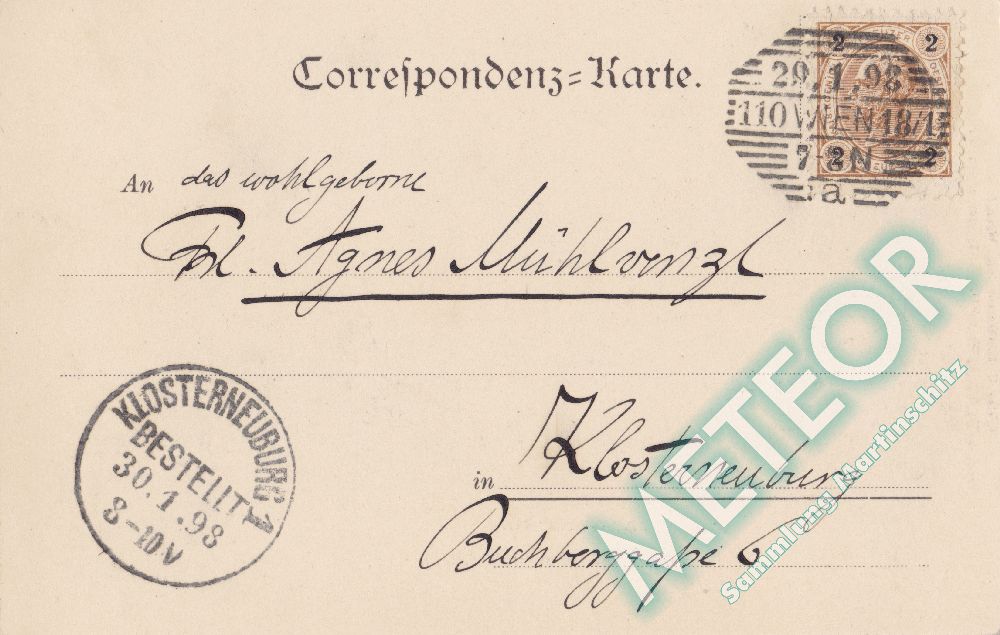 Correspondenz-Karte.
2 2
29.1.98
110 WIEN 18/1
7-8N
2 2
a
An das wohlgeborne
Frl. Agnes Mühlvenzl
KLOSTERNEUBURG 1
BESTELLT
30.1.98
8-10V
in Klosterneuburg
Buchberggaße 6
METEOR
Sammlung Martinschitz